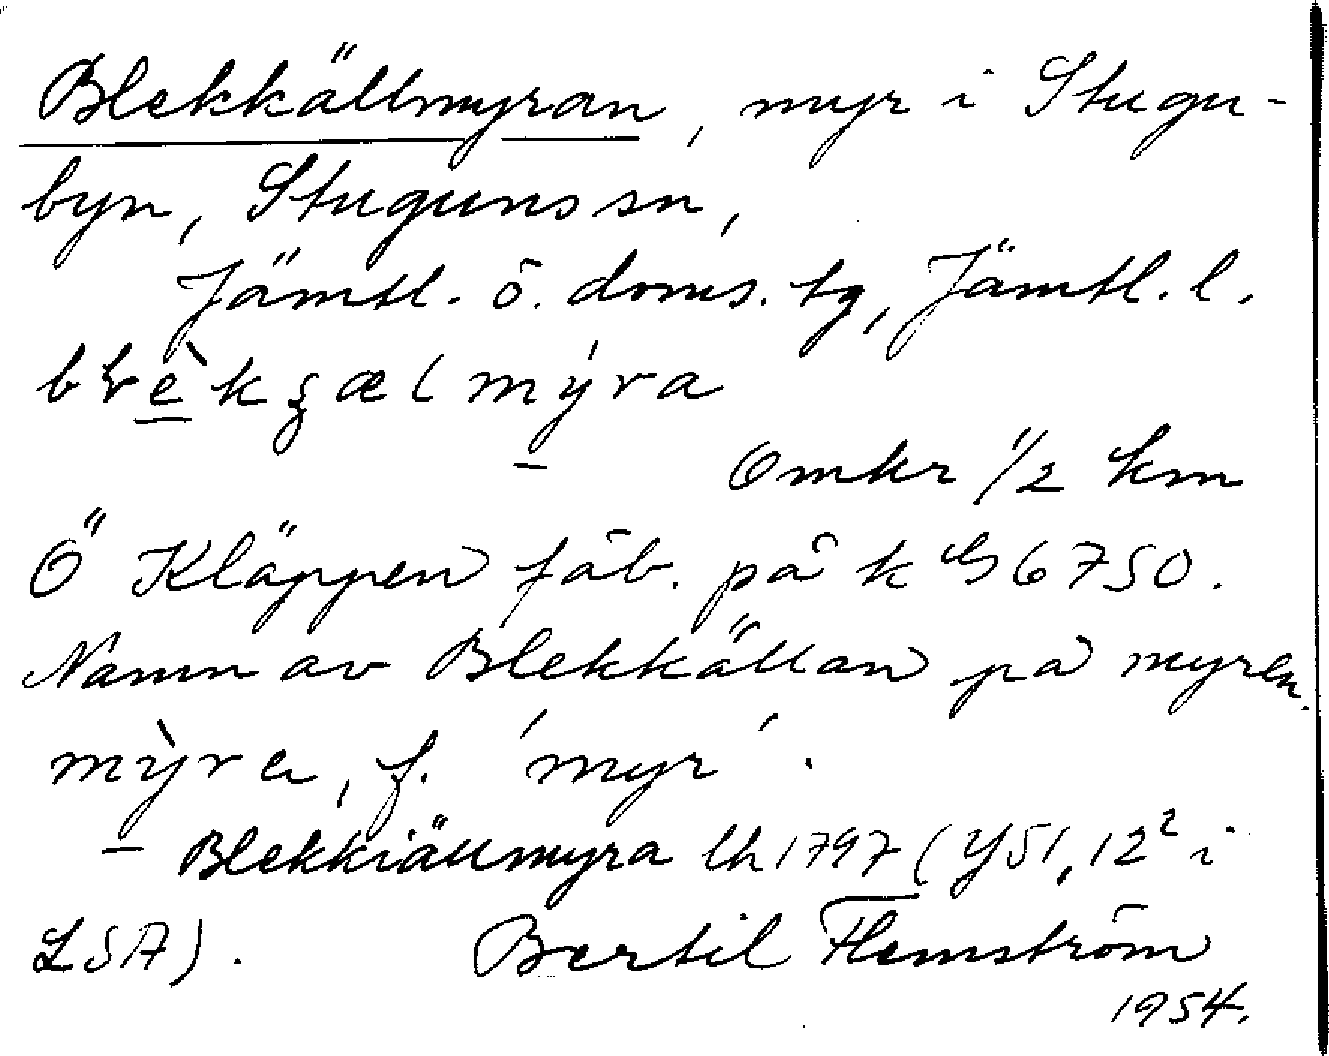 Blekkällmyran, myr i Stugu-
byn, Stuguns sn,
Jämtl. ö. doms. tg, Jämtl. l.
mýra
Omkr 1/2 km
Ö Kläppen fäb. på k 6750.
Namn av Blekkällan på myren.
mỳra, f. 'myr'.
– Blekkiällmyra lh 1797 (Y51, 12² i
LSA). Bertil Flemström
1954.